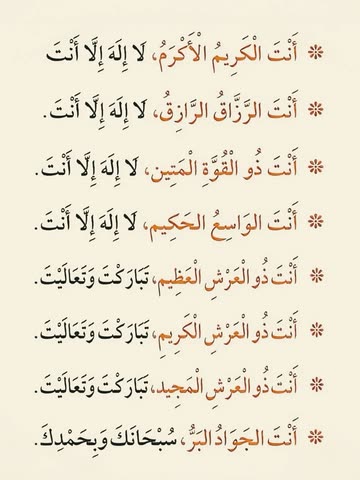 ❊ أَنْتَ الْكَرِيمُ الْأَكْرَمُ، لَا إِلَهَ إِلَّا أَنْتَ
❊ أَنْتَ الرَّزَّاقُ الرَّازِقُ، لَا إِلَهَ إِلَّا أَنْتَ.
❊ أَنْتَ ذُو الْقُوَّةِ الْمَتِين، لَا إِلَهَ إِلَّا أَنْتَ.
❊ أَنْتَ الوَاسِعُ الحَكِيم، لَا إِلَهَ إِلَّا أَنْتَ.
❊ أَنْتَ ذُو الْعَرْشِ الْعَظِيمِ، تَبَارَكْتَ وَتَعَالَيْتَ.
❊ أَنْتَ ذُو الْعَرْشِ الْكَرِيمِ، تَبَارَكْتَ وَتَعَالَيْتَ.
❊ أَنْتَ ذُو الْعَرْشِ الْمَجِيد، تَبَارَكْتَ وَتَعَالَيْتَ.
❊ أَنْتَ الجَوَادُ البَرُّ، سُبْحَانَكَ وَبِحَمْدِكَ.